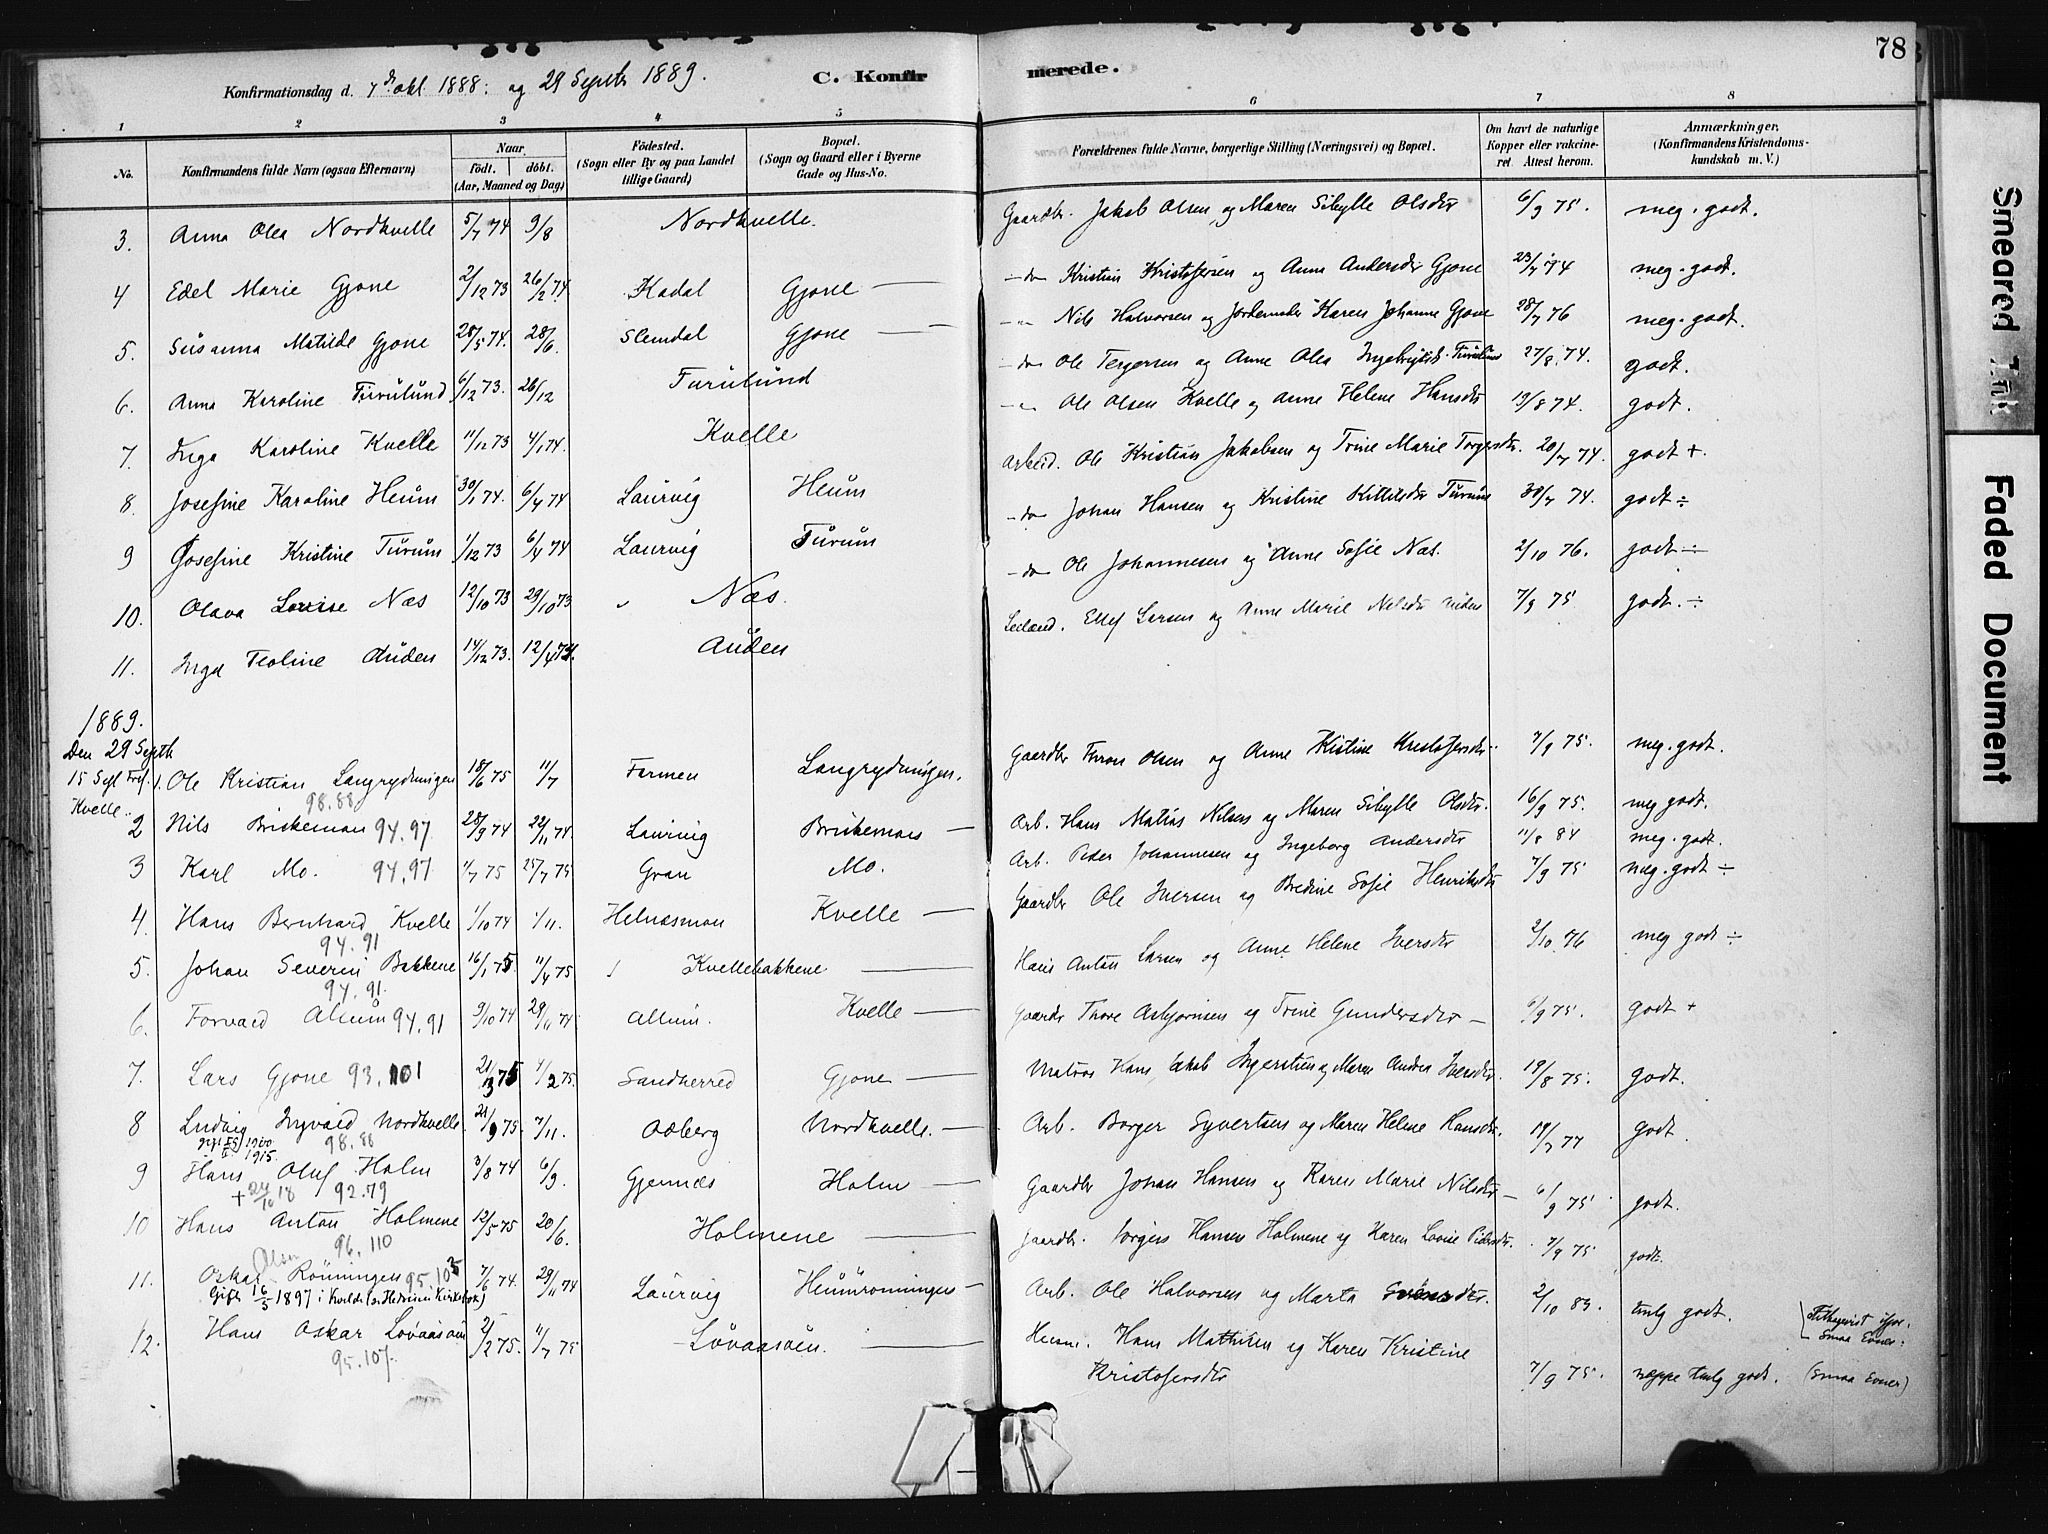 78
Konfirmationsdag d. 7de okt 1888. og 29 Septb 1889.
C. Konfirmerede.
1 2 3 4 5 6 7 8
No. Konfirmandens fulde Navn (ogsaa Efternavn) Naar født. døbt. (Aar, Maaned og Dag) Fødested. (Sogn eller By og paa Landet tillige Gaard) Bopæl. (Sogn og Gaard eller i Byerne Gade og Hus-No. Forældrenes fulde Navne, borgerlige Stilling (Næringsvei) og Bopæl. Om havt de naturlige Kopper eller vakcineret. Attest herom. Anmærkninger. (Konfirmandens Kristendomskundskab m. V.)
3. Anna Olea Nordkvelle 5/7 74 9/8 Nordkvelle. Gaardbr. Jakob Olsen og Maren Sibylle Olsdtr 6/9 75. meg. godt.
4 Edel Marie Gjone 2/12 73 26/2 74 Hadal Gjone — do Kristian Kristofersen og Anne Andersdtr Gjone 23/7 74 meg. godt.
5. Susanna Matilde Gjone 28/5 74. 28/6. Slemdal Gjone — " Nils Halvorsen og Jordemoder Karen Johanne Gjone 28/7 76 meg. godt.
6. Anna Karoline Furulund 6/12 73. 26/12 Furulund — do Ole Tergersen og Anne Olea Ingebrigtsd. Furulund 27/8. 74. godt.
7. Inga Karoline Kvelle 11/12 73 4/1 74. Kvelle — " Ole Olsen Kvelle og Anne Helene Hansdtr 19/8 74. godt.
8. Josefine Karoline Heum 30/1 74. 6/4 74 Laurvig Heum Arbeid. Ole Kristian Jakobsen og Trine Marie Torgersdtr. 20/7 74. godt +.
9 Josefine Kristine Furum 1/12 73 6/4 74 Laurvig Furum — do Johan Hansen og Kristine Kittilsdtr Furum 30/7 74. godt ÷
10. Olava Lovise Næs 12/10 73 29/10 73 " Næs. — do Ole Johannesen og Anne Sofie Næs. 2/10 76. godt ÷
11. Inga Teoline Auden 14/12 73. 12/4 74. Auden Ellef Larsen og Anne Marie Nilsdtr Auden 7/9 75 godt. ÷
1889.
Den 29 Septb
15 Kvelle.
1. Ole Kristian Langrydningen 18/6 75 11/7 Formen Langrydningen. Gaardbr Thron Olsen og Anne Kistine Kristofersdtr. 7/9 75. meg. godt.
98.88
2 Nils Briskemoen 94.97 28/9 74 22/11 74. Laurvig Briskemoen — Arb. Hans Matias Nilsen og Maren Sibylle Olsdtr. 16/9 75. meg godt.
3 Karl Mo. 94.97 1/7 75 25/7 75 Gran Mo. Arb. Peder Johannesen og Ingeborg Andersdtr 11/8 84 meg. godt.
4. Hans Bernhard Kvelle 1/10 74 1/11. Helnæsmon Kvelle — Gaardbr Ole Iversen og Bredine Sofie Henriksdtr 7/9 75 meg. godt ÷
94.91
5. Johan Severin Bakkene 16/1 75 11/4 75 Kvellebakkene — Hans Anton Larsen og Anne Helene Iversdtr 2/10 76 meg godt ÷
94.91.
6. Torvald Alum 94.91 9/10 74 29/11 74 Allum. Kvelle — Gaardbr Thore Asbjørnsen og Trine Gundersdtr — 6/9 75. godt +
7. Lars Gjone 93.101 21/1 75 4/2 75. Sandherred Gjone — Matros Hans Jakob Ingerstsen og Maren Andrea Iversdtr. 19/8 75. godt.
8 Ludvig Ingvald Nordkvelle 21/9 75. 7/11. Odberg Nordkvelle. — Arb. Borger Syvertsen og Maren Helene Hansdtr. 19/7 77 godt.
1900 1915 98.88
9 Hans Oluf Holm 3/8 74 6/9. Gjennæs Holm — Gaardbr Johan Hansen og Karen Marie Nilsdtr — 6/9 75 godt.
+ 24/10 18 92.79
10 Hans Anton Holmene 12/5 75 20/6. Holmene — Gaardbr. Jørgen Hansen Holmene og Karen Lovise Pedersdtr. 7/9 75 godt.
96.110
Olsen
11. Oskar Rönningen 95.105 7/6 74. 29/11 74 Laurvig Heumrönningen — Arb. Ole Halvorsen og Marta Svensdtr. 2/10 89. tmlg godt.
Gift 16/5 1897 i Kvelde (se Hedrum Kirkebok)
12. Hans Oskar Lövaasöen 2/2 75. 11/7 75 Lövaasöen. — Husm. Hans Mathisen og Karen Kristine Kristofersdtr 7/9 75. neppe tmlg godt. (Smaa Evner)
95.107.
Smaa Evner.
Smeared Ink
Faded Document